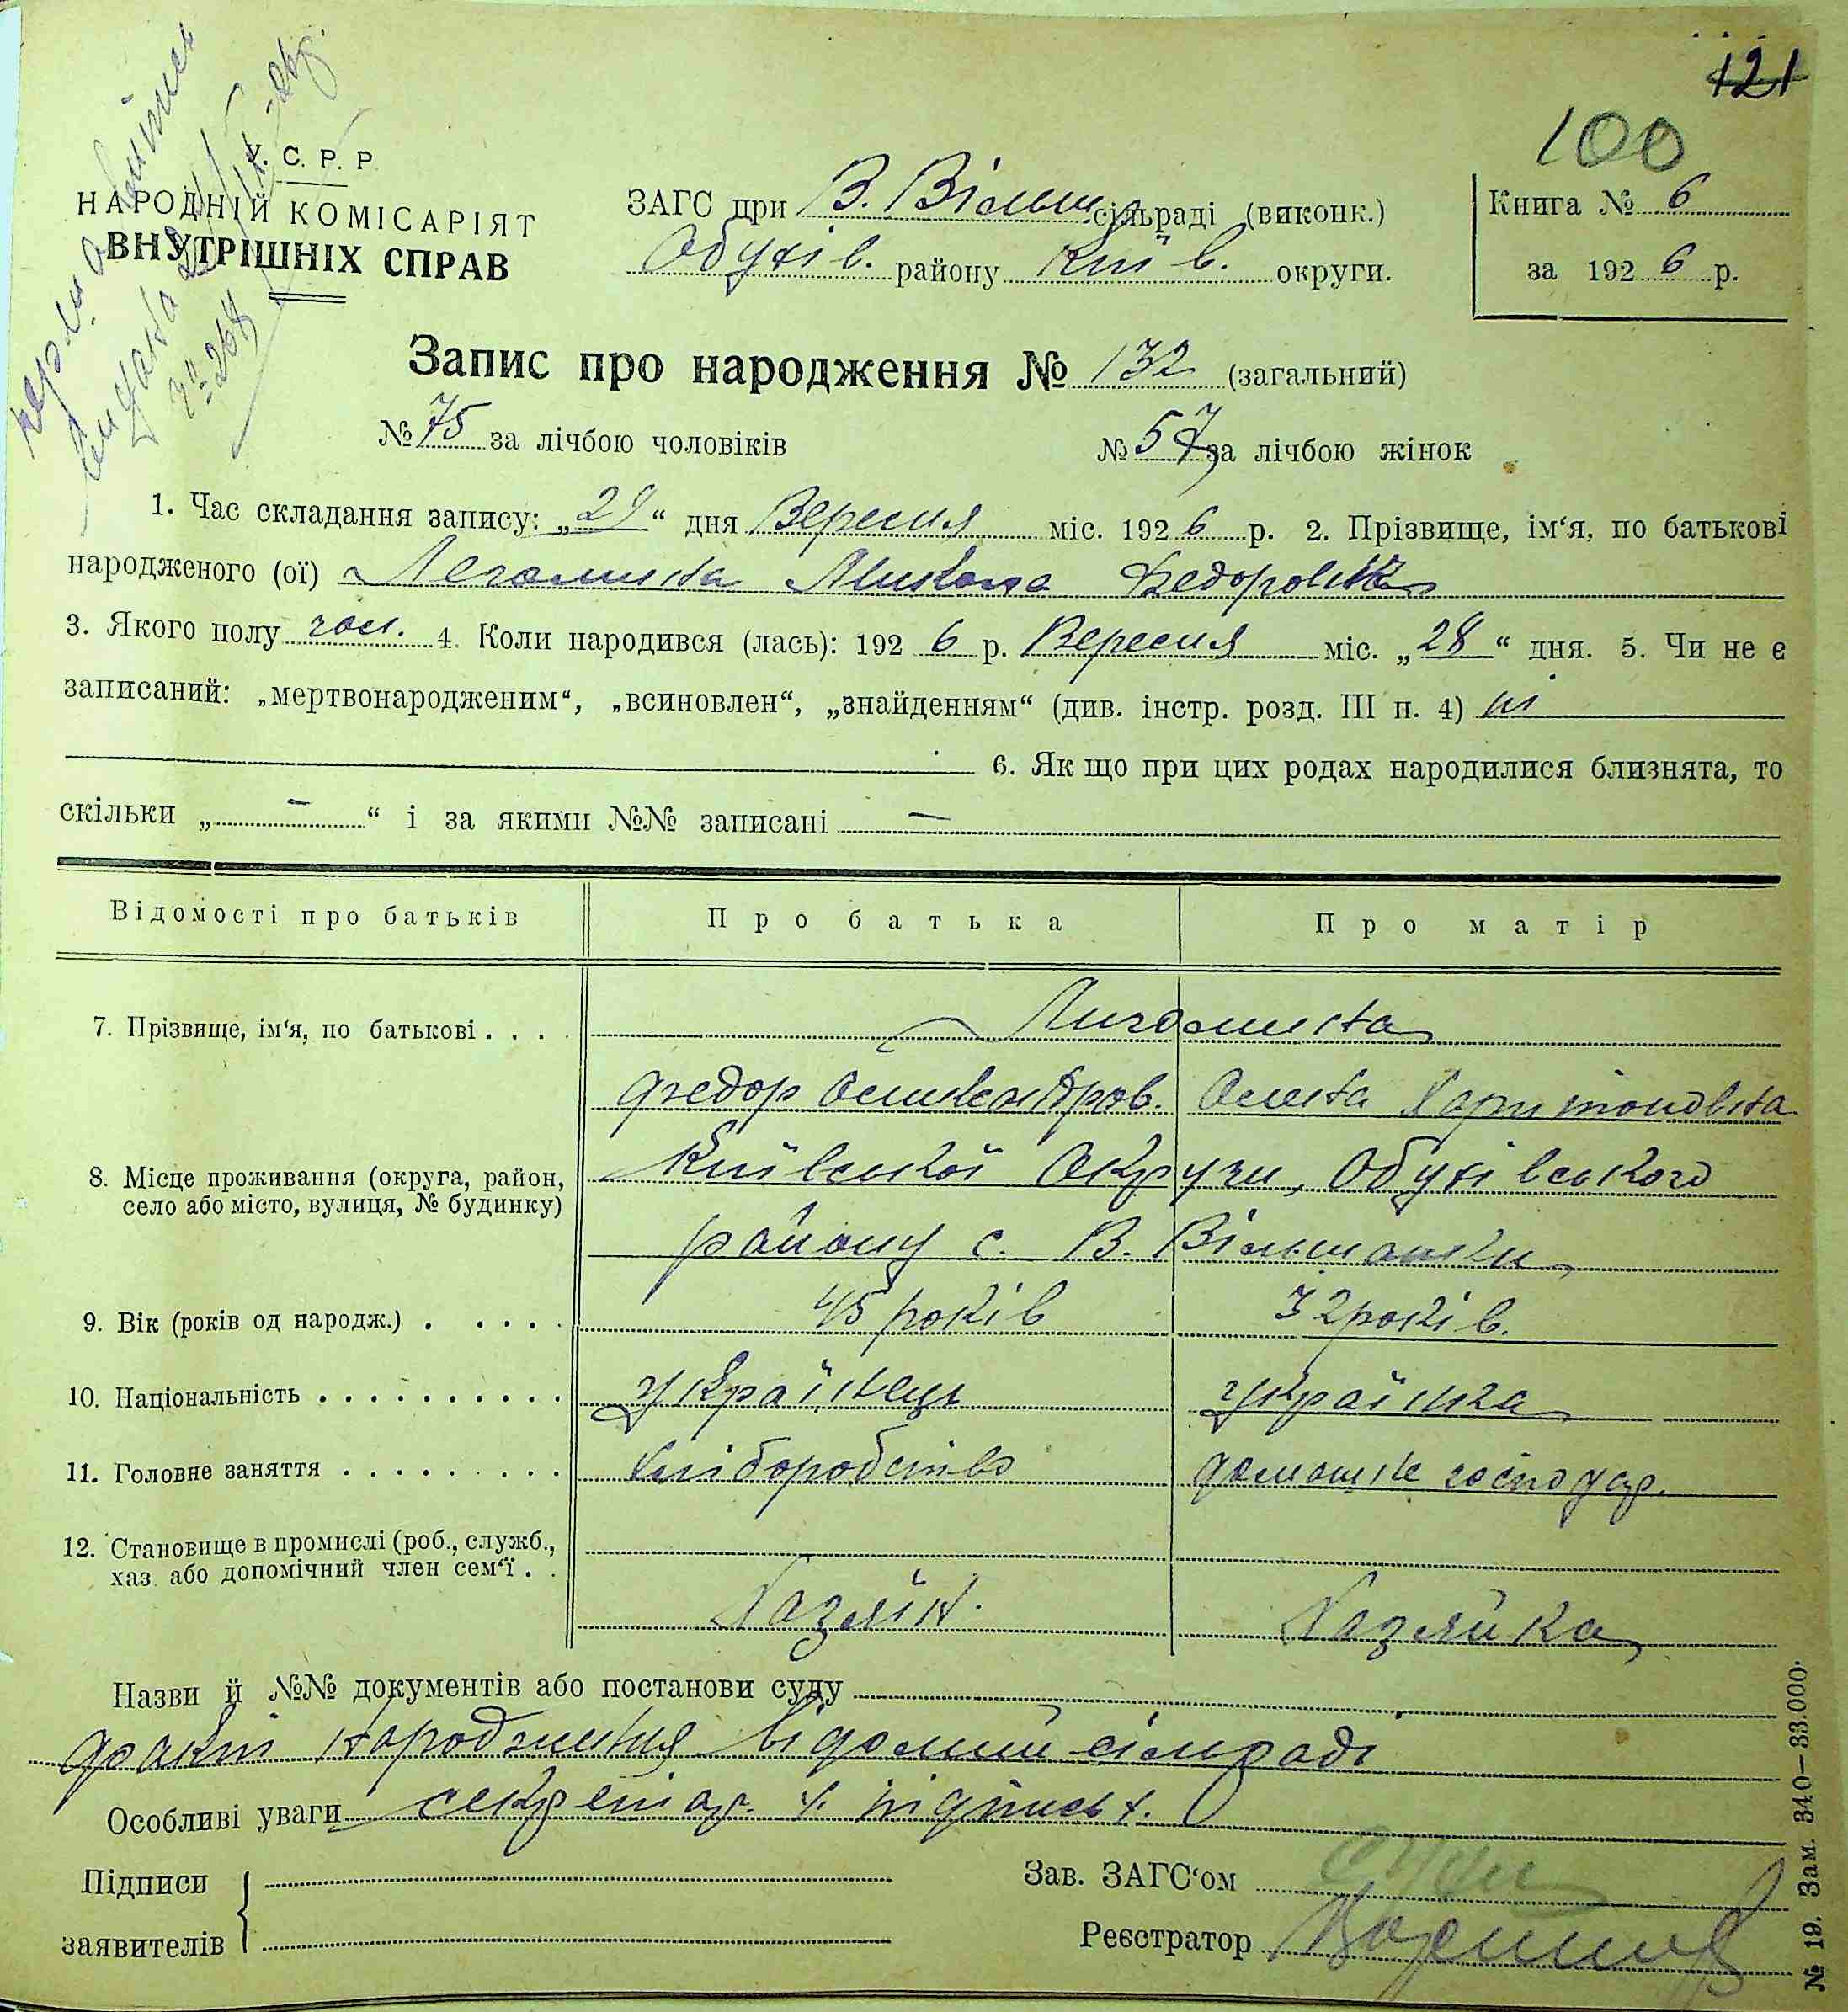 121
100
У. С. Р. Р.
НАРОДНІЙ КОМІСАРІЯТ
ВНУТРІШНІХ СПРАВ
ЗАГС при В. Вільш. сільраді (виконк.)
Обухів. району Київ. округи.
Книга № 6
за 1926 р.
Запис про народження № 132 (загальний)
№ 75 за лічбою чоловіків № 57 за лічбою жінок
1. Час складання запису: „29“ дня Вересня міс. 1926 р. 2. Прізвище, ім‘я, по батькові
народженого (ої) Микола Федорович
3. Якого полу чол. 4. Коли народився (лась): 1926 р. Вересня міс. „28“ дня. 5. Чи не є
записаний: „мертвонародженим“, „всиновлен“, „знайденням“ (див. інстр. розд. III п. 4) ні
6. Як що при цих родах народилися близнята, то
скільки „ — “ і за якими №№ записані —
Відомості про батьків Про батька Про матір
7. Прізвище, ім‘я, по батькові . . . .
Федор Олександров. Олена Харитоновна
8. Місце проживання (округа, район,
село або місто, вулиця, № будинку)
Київської Округи, Обухівського
району с. В. Вільшанки
9. Вік (років од народж.) . . . . . 45 років 32 років.
10. Національність . . . . . . . . . . Українець Українка
11. Головне заняття . . . . . . . . . хліборобство домашнє господар.
12. Становище в промислі (роб., служб.,
хаз. або допомічний член сем‘ї . .
Хазяїн. Хазяйка
Назви й №№ документів або постанови суду
факт народження відомий сільраді
Особливі уваги секретар. підпись.
Підписи
заявителів
Зав. ЗАГС‘ом
Реєстратор
№ 19. Зам. 340—33.000.